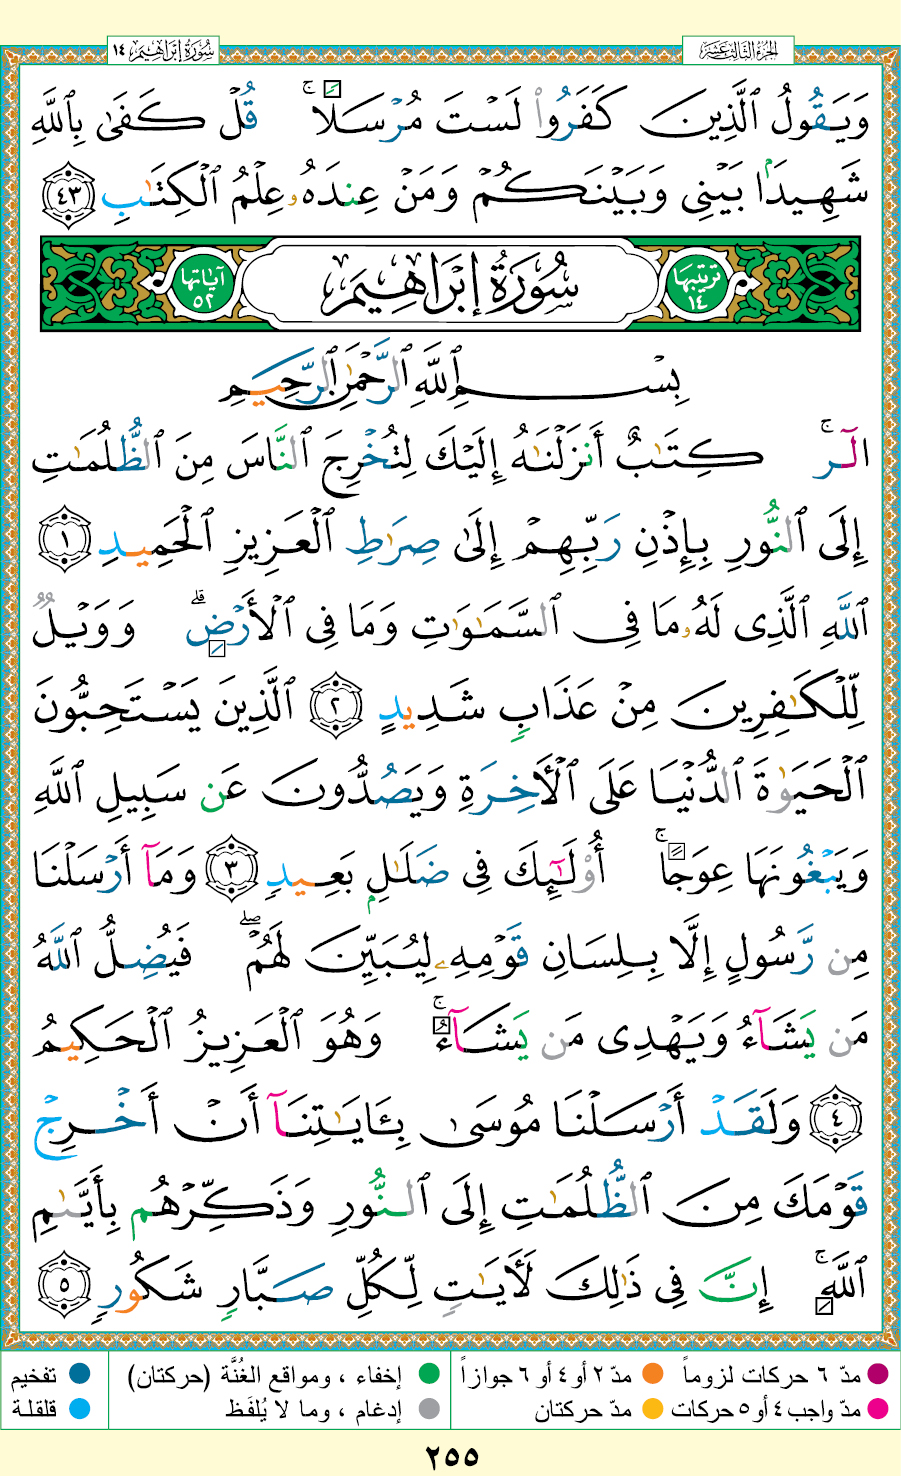 سُورَةُ إِبْرَاهِيم ١٤
الجُزءُ الثَّالِثَ عَشَرَ
وَيَقُولُ ٱلَّذِينَ كَفَرُوا۟ لَسْتَ مُرْسَلًا ۚ قُلْ كَفَىٰ بِٱللَّهِ
شَهِيدًۢا بَيْنِى وَبَيْنَكُمْ وَمَنْ عِندَهُۥ عِلْمُ ٱلْكِتَـٰبِ ٤٣
تَرتيبُهَا ١٤
سُورَةُ إِبْرَاهِيمَ
آيَاتُهَا ٥٢
بِسْمِ ٱللَّهِ ٱلرَّحْمَـٰنِ ٱلرَّحِيمِ
الٓر ۚ كِتَـٰبٌ أَنزَلْنَـٰهُ إِلَيْكَ لِتُخْرِجَ ٱلنَّاسَ مِنَ ٱلظُّلُمَـٰتِ
إِلَى ٱلنُّورِ بِإِذْنِ رَبِّهِمْ إِلَىٰ صِرَٰطِ ٱلْعَزِيزِ ٱلْحَمِيدِ ١
ٱللَّهِ ٱلَّذِى لَهُۥ مَا فِى ٱلسَّمَـٰوَٰتِ وَمَا فِى ٱلْأَرْضِ ۗ وَوَيْلٌ
لِّلْكَـٰفِرِينَ مِنْ عَذَابٍ شَدِيدٍ ٢ ٱلَّذِينَ يَسْتَحِبُّونَ
ٱلْحَيَوٰةَ ٱلدُّنْيَا عَلَى ٱلْـَٔاخِرَةِ وَيَصُدُّونَ عَن سَبِيلِ ٱللَّهِ
وَيَبْغُونَهَا عِوَجًا ۚ أُو۟لَـٰٓئِكَ فِى ضَلَـٰلٍۭ بَعِيدٍ ٣ وَمَآ أَرْسَلْنَا
مِن رَّسُولٍ إِلَّا بِلِسَانِ قَوْمِهِۦ لِيُبَيِّنَ لَهُمْ ۖ فَيُضِلُّ ٱللَّهُ
مَن يَشَآءُ وَيَهْدِى مَن يَشَآءُ ۚ وَهُوَ ٱلْعَزِيزُ ٱلْحَكِيمُ
٤ وَلَقَدْ أَرْسَلْنَا مُوسَىٰ بِـَٔايَـٰتِنَآ أَنْ أَخْرِجْ
قَوْمَكَ مِنَ ٱلظُّلُمَـٰتِ إِلَى ٱلنُّورِ وَذَكِّرْهُم بِأَيَّىٰمِ
ٱللَّهِ ۚ إِنَّ فِى ذَٰلِكَ لَـَٔايَـٰتٍ لِّكُلِّ صَبَّارٍ شَكُورٍ ٥
مدّ ٦ حركات لزوماً مدّ ٢ أو ٤ أو ٦ جوازاً إخفاء ، ومواقع الغُنَّة (حركتان) تفخيم
مدّ واجب ٤ أو ٥ حركات مدّ حركتان إدغام ، وما لا يُلفَظ قلقلة
٢٥٥